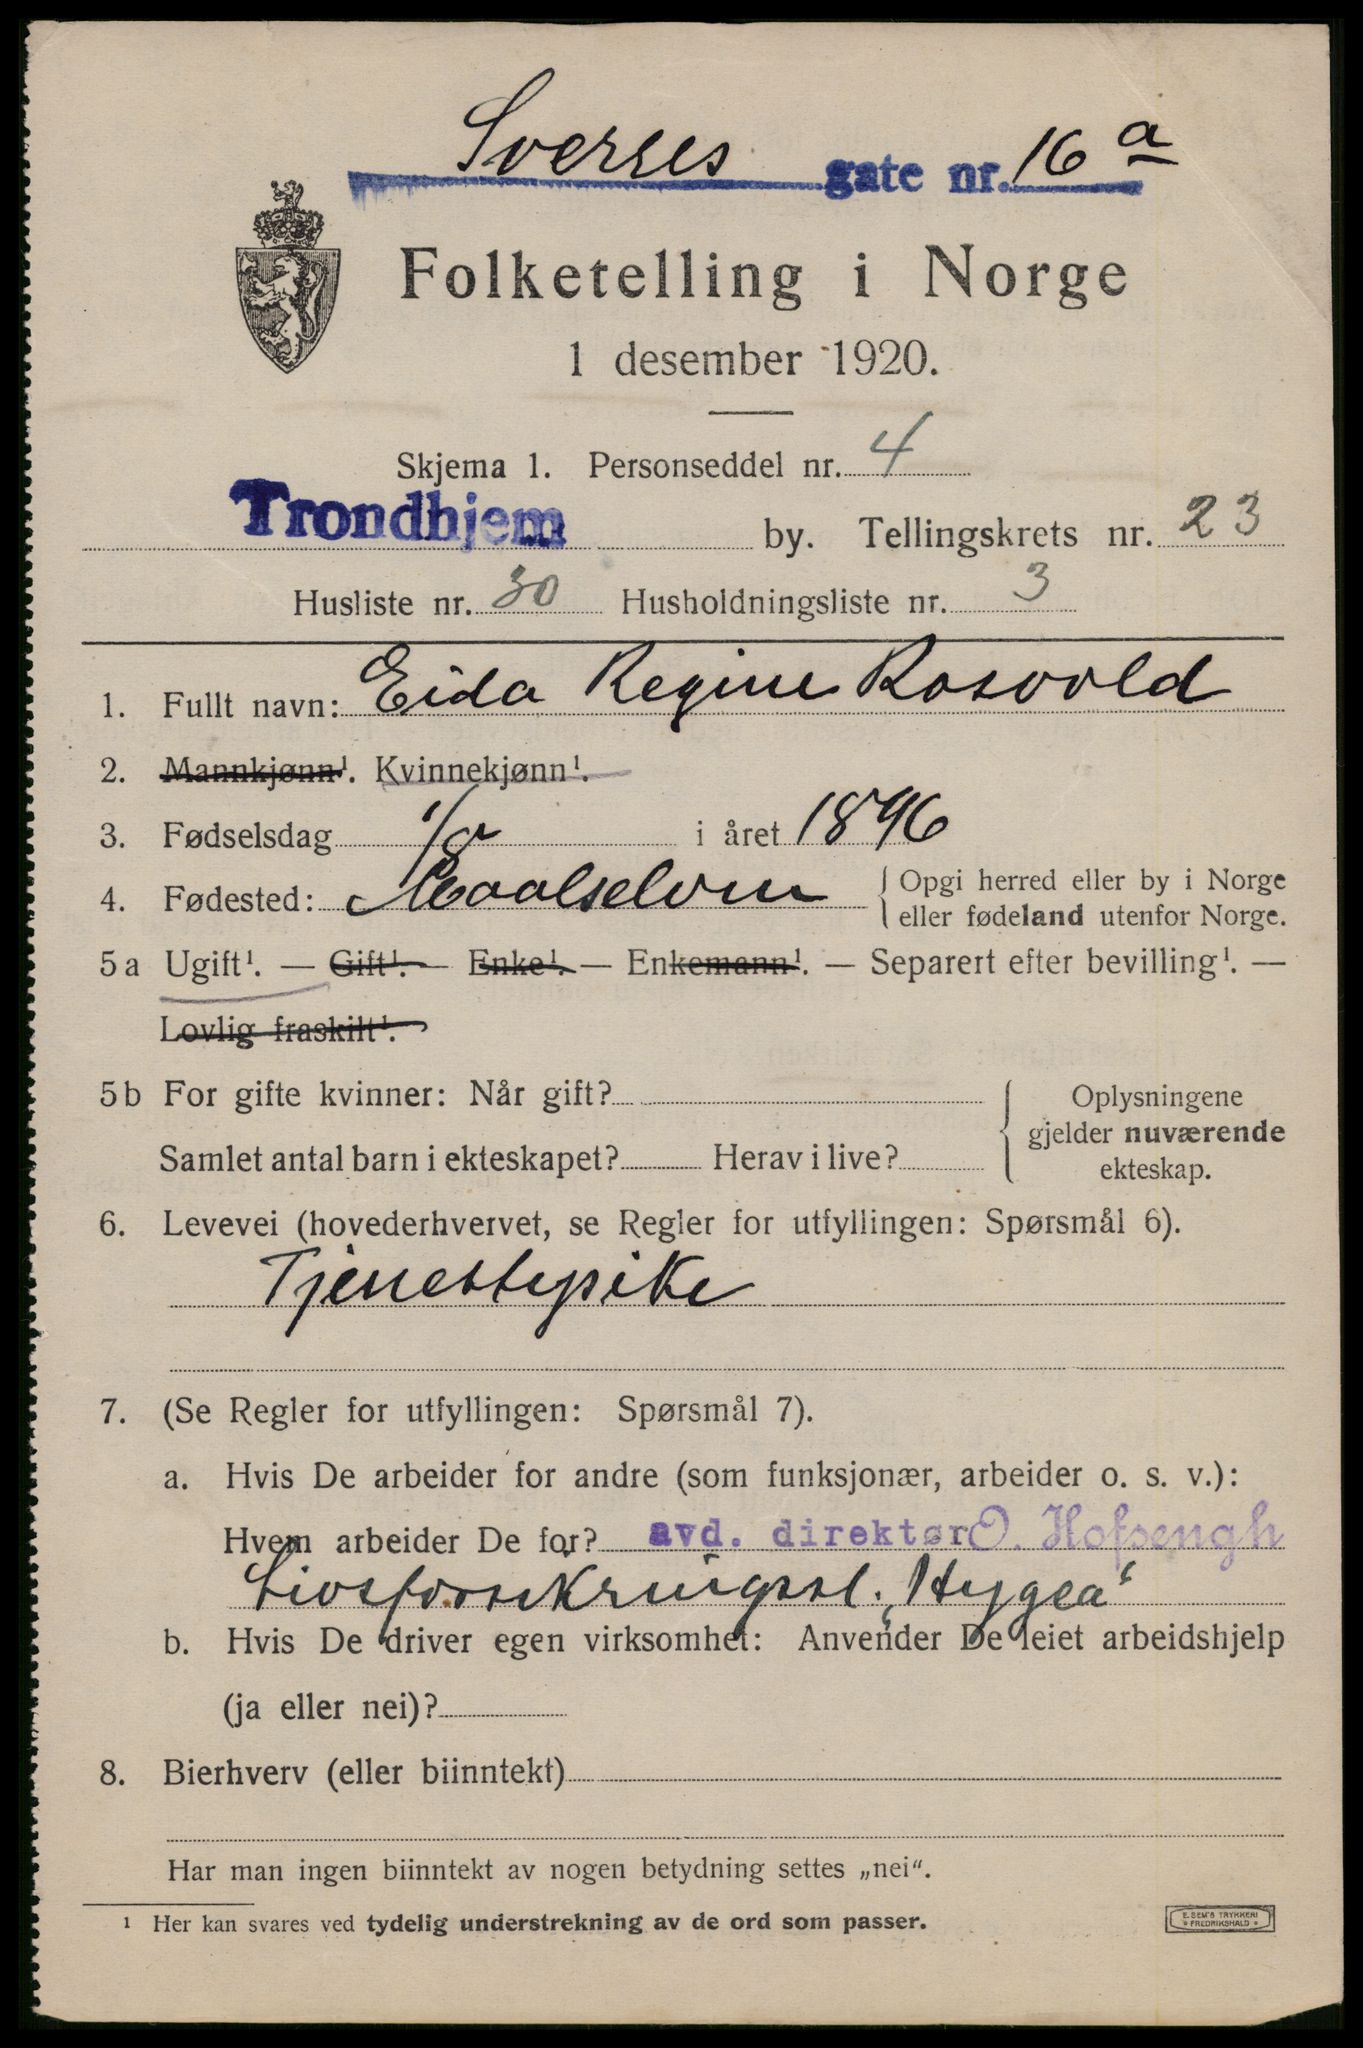 Sverres gate nr. 16 a
Folketelling i Norge
1 desember 1920.
Skjema 1. Personseddel nr. 4
Trondhjem by. Tellingskrets nr. 23
Husliste nr. 30 Husholdningsliste nr. 3
1. Fullt navn: Eida Regine Rosvold
2. Mannkjønn¹. Kvinnekjønn¹.
3. Fødselsdag 1/8 i året 1896
4. Fødested: Maalselven { Opgi herred eller by i Norge
eller fødeland utenfor Norge.
5a Ugift¹. — Gift¹. — Enke¹. — Enkemann¹. — Separert efter bevilling¹. —
Lovlig fraskilt¹.
5b For gifte kvinner: Når gift? { Oplysningene
gjelder nuværende
Samlet antal barn i ekteskapet? Herav i live?
ekteskap.
6. Levevei (hovederhvervet, se Regler for utfyllingen: Spørsmål 6).
Tjenestepike
7. (Se Regler for utfyllingen: Spørsmål 7).
a. Hvis De arbeider for andre (som funksjonær, arbeider o. s. v.):
Hvem arbeider De for? avd. direktør O. Hofsengh
Livsforsikringssl. „Hygea“
b. Hvis De driver egen virksomhet: Anvender De leiet arbeidshjelp
(ja eller nei)?
8. Bierhverv (eller biinntekt)
Har man ingen biinntekt av nogen betydning settes „nei“.
¹ Her kan svares ved tydelig understrekning av de ord som passer.
E. SEM'S TRYKKERI
* FREDRIKSHALD *